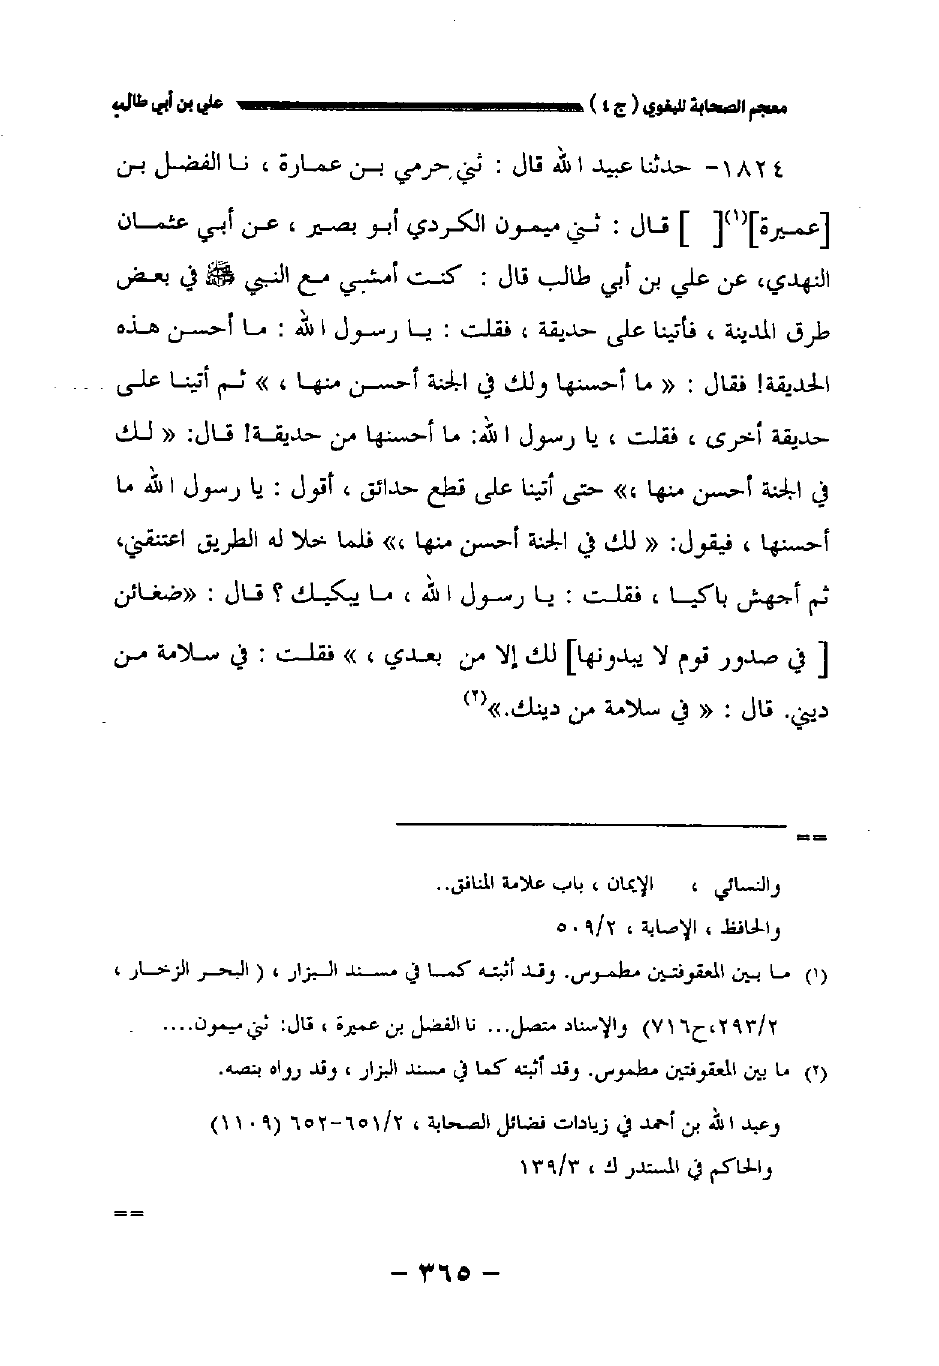 معجم الصحابة للبغوي ( ج ٤ ) علي بن أبي طالب
١٨٢٤- حدثنا عبيد الله قال : ثني حرمي بن عمارة ، نا الفضل بن
[عميرة](١)[ ] قال : ثني ميمون الكردي أبو بصير ، عن أبي عثمان
النهدي، عن علي بن أبي طالب قال : كنت أمشي مع النبي ﷺ في بعض
طرق المدينة ، فأتينا على حديقة ، فقلت : يا رسول الله : ما أحسن هذه
الحديقة! فقال : « ما أحسنها ولك في الجنة أحسن منها ، » ثم أتينا على
حديقة أخرى ، فقلت ، يا رسول الله: ما أحسنها من حديقة! قال: « لك
في الجنة أحسن منها ،» حتى أتينا على قطع حدائق ، أقول : يا رسول الله ما
أحسنها ، فيقول: « لك في الجنة أحسن منها ،» فلما خلا له الطريق اعتنقني،
ثم أجهش باكيا ، فقلت : يا رسول الله ، ما يبكيك ؟ قال : «ضغائن
[ في صدور قوم لا يبدونها] لك إلا من بعدي ، » فقلت : في سلامة من
ديني. قال : « في سلامة من دينك.»(٢)
==
والنسائي ، الإيمان ، باب علامة المنافق..
والحافظ ، الإصابة ، ٥٠٩/٢
(١) ما بين المعقوفتين مطموس. وقد أثبته كما في مسند البزار ، ( البحر الزخار ،
٢٩٣/٢،ح٧١٦) والإسناد متصل... نا الفضل بن عميرة ، قال: ثني ميمون....
(٢) ما بين المعقوفتين مطموس. وقد أثبته كما في مسند البزار ، وقد رواه بنصه.
وعبد الله بن أحمد في زيادات فضائل الصحابة ، ٦٥١/٢-٦٥٢ (١١٠٩)
والحاكم في المستدرك ، ١٣٩/٣
==
- ٣٦٥ -